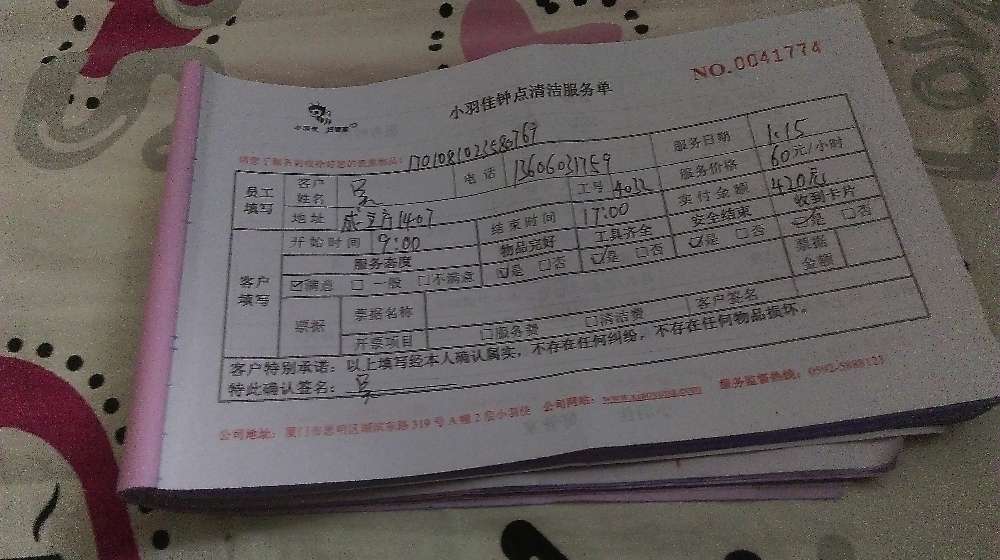 NO.0041774
小羽佳钟点清洁服务单
小羽佳
员工填写 客户姓名 吴 电话 13606031759 服务日期 1.15
地址 1407 工号 4022 服务价格 60元/小时
客户填写 开始时间 9:00 结束时间 17:00 实付金额 420元
服务态度 物品完好 工具齐全 安全结束 收到卡片
☑满意 □一般 □不满意 ☑是 □否 ☑是 □否 ☑是 □否 ☑是 □否
票据 票据名称 票据金额
开票项目 □服务费 □清洁费 客户签名
客户特别承诺：以上填写经本人确认属实，不存在任何纠纷，不存在任何物品损坏。
特此确认签名：吴
公司地址：厦门市思明区湖滨东路319号A幢2层小羽佳 公司网站： 服务监督热线：0592-5888123